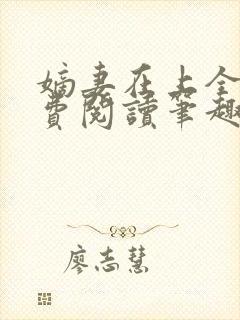 嫡妻在上全
費閱讀筆趣
廖志慧